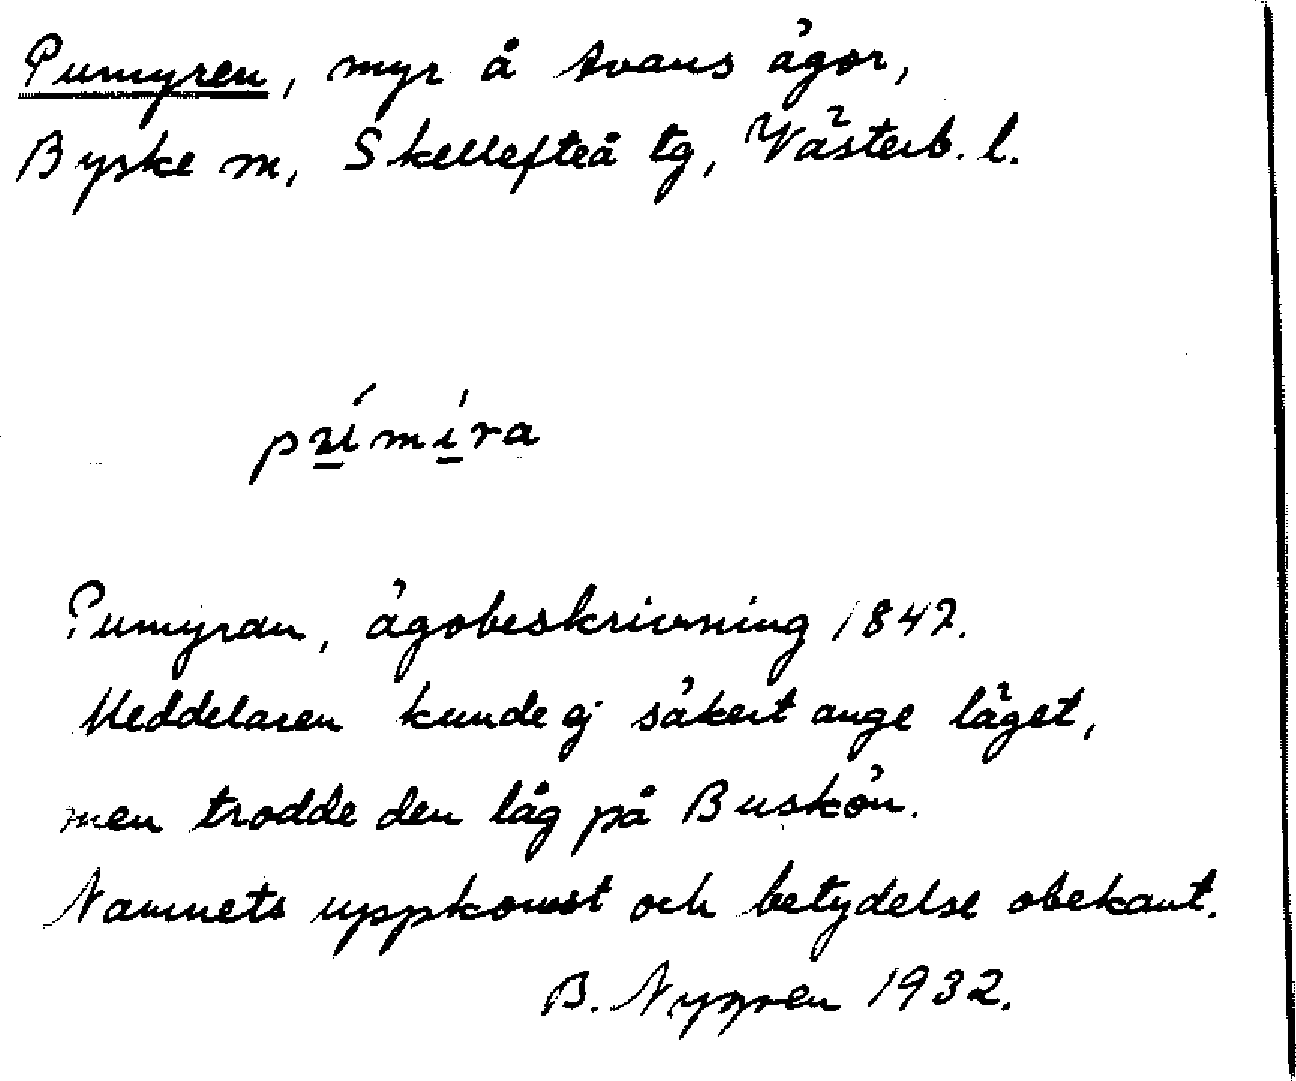 Pumyren, myr å Avans ägor,
Byske sn, Skellefteå tg, Västerb. l.
Pumyran, ägobeskrivning 1847.
Meddelaren kunde ej säkert ange läget,
men trodde den låg på Buskön.
Namnets uppkomst och betydelse obekant.
B. Nygren 1932.